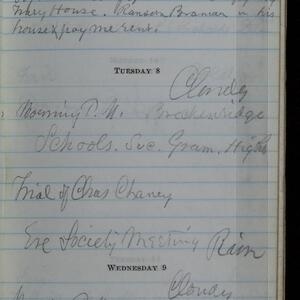 House. Ransom Braman in his
house & pay me rent.
TUESDAY 8
Cloudy
Morning P. N. Brackenridge
Schools. Sec. Gram. High
Trial of Chas Chaney
Eve Society Meeting Rain
WEDNESDAY 9
Cloudy